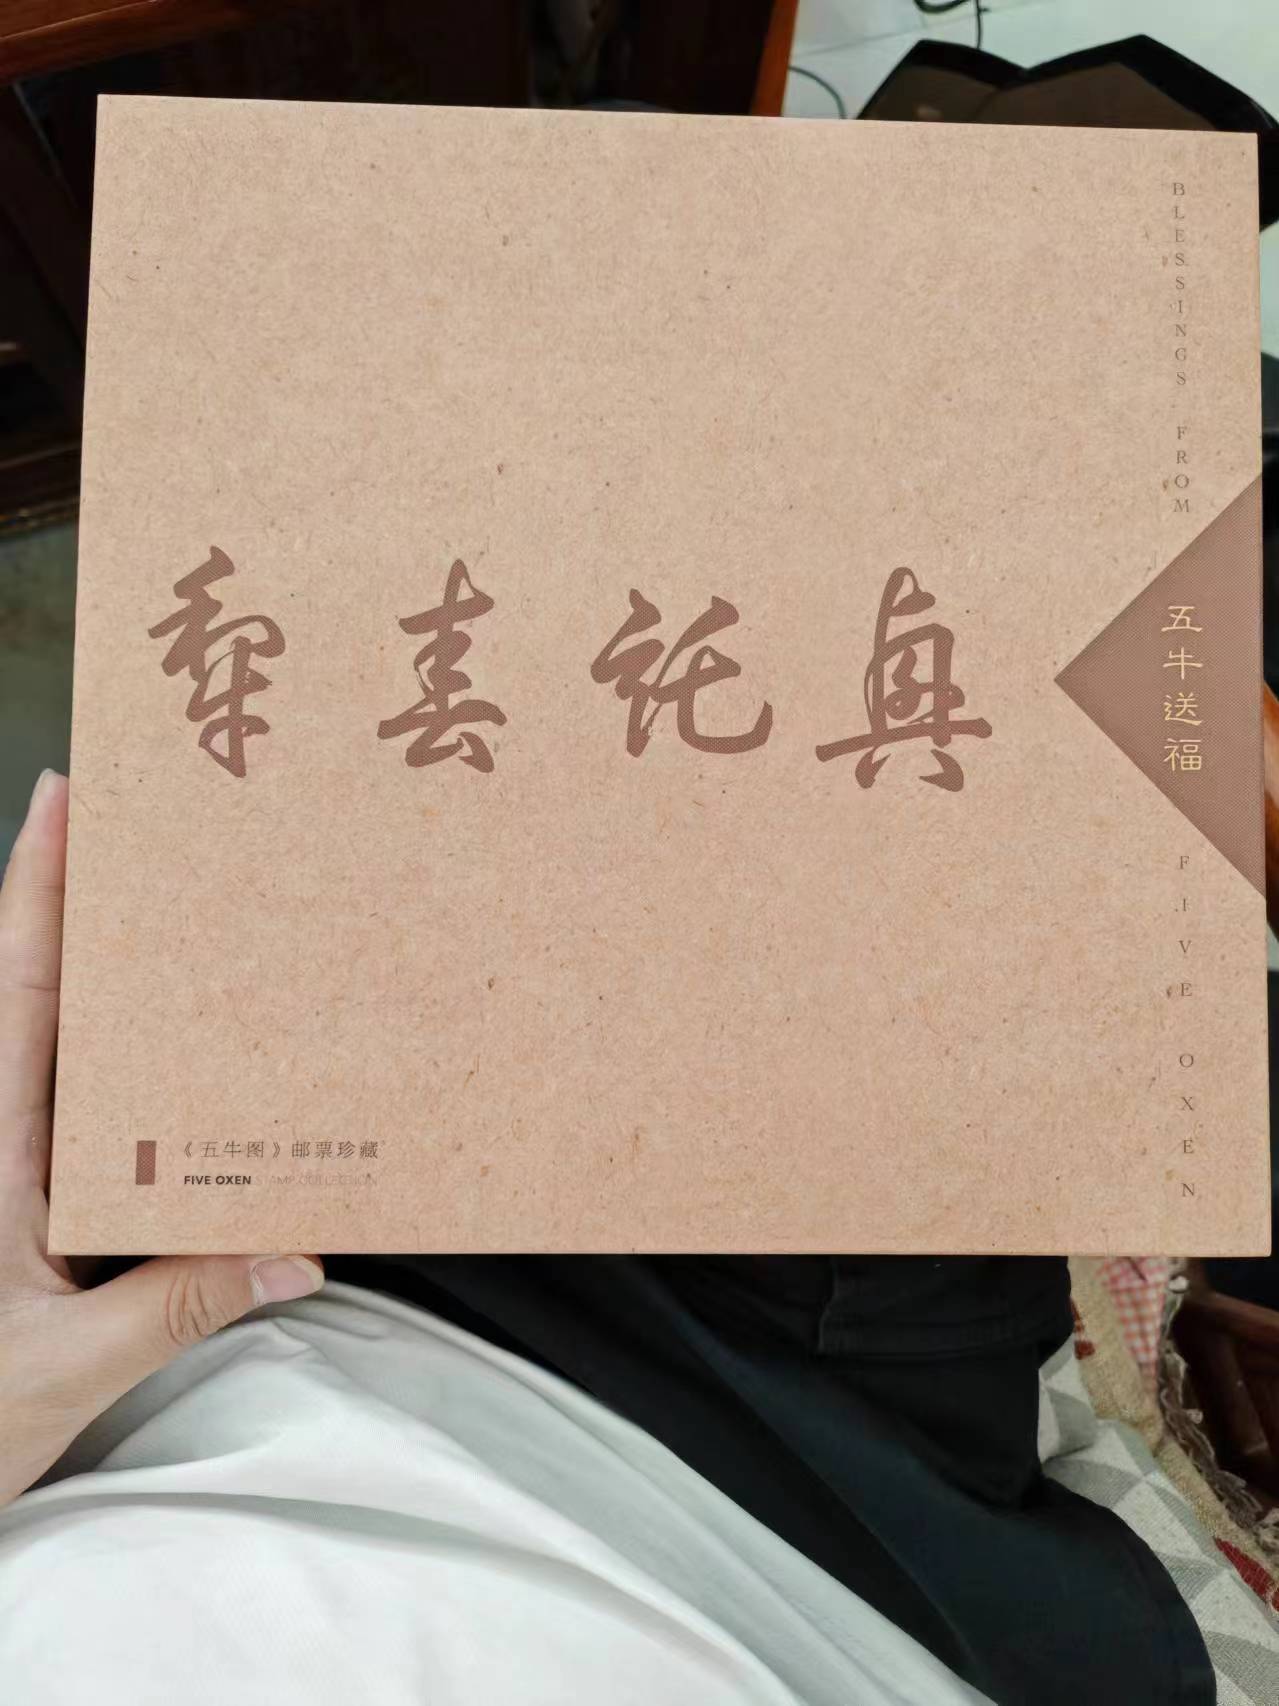 興託春犂
BLESSINGS FROM
五牛送福
FIVE OXEN
《五牛图》邮票珍藏
FIVE OXEN STAMP COLLECTION